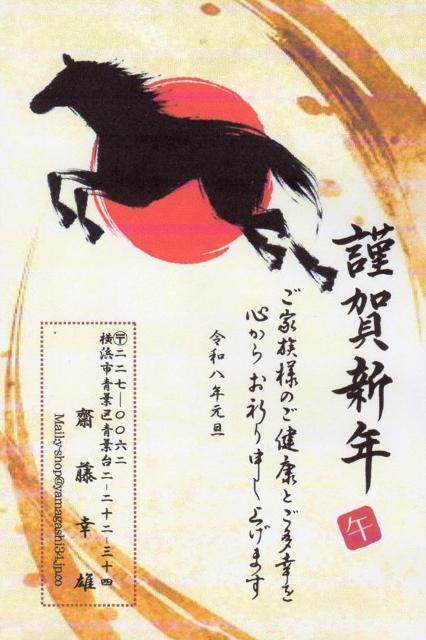 謹賀新年
午
ご家族様のご健康とご多幸を
心からお祈り申し上げます
令和八年元旦
〒二二七-〇〇六二
横浜市青葉区青葉台二-二十二-三十四
齋藤幸雄
Maily-shop@yamagashi34.jp.co